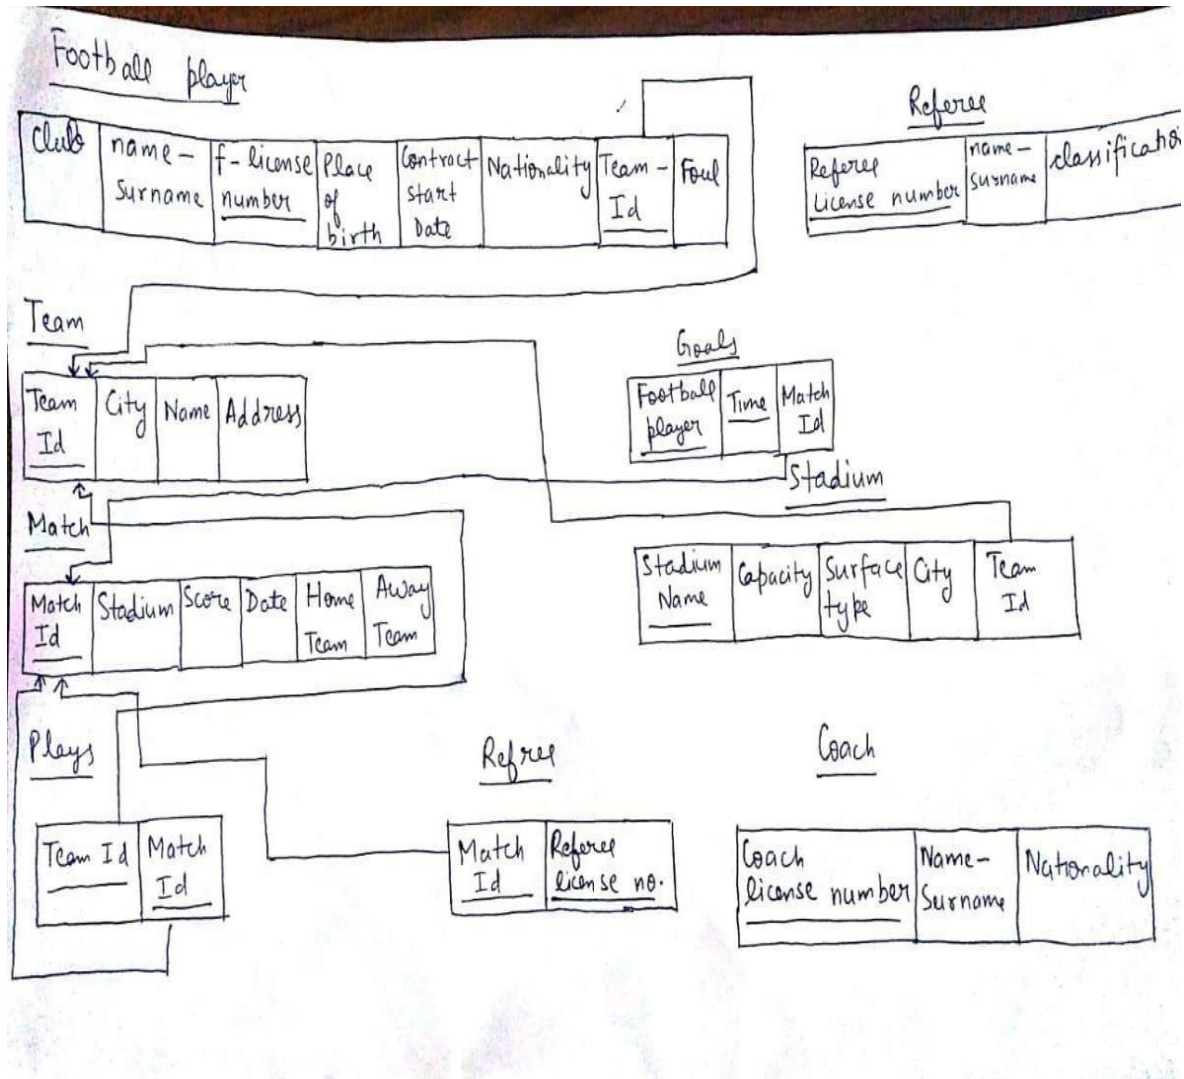 Football player
Club
name-
Surname
f-license
number
Place
of
birth
Contract
start
Date
Nationality
Team-
Id
Foul
Referee
Referee
License number
name-
surname
classification
Team
Team
Id
City
Name
Address
Goals
Football
player
Time
Match
Id
Stadium
Stadium
Name
Capacity
Surface
type
City
Team
Id
Match
Match
Id
Stadium
Score
Date
Home
Team
Away
Team
Plays
Team Id
Match
Id
Refree
Match
Id
Referee
license no.
Coach
Coach
license number
Name-
Surname
Nationality